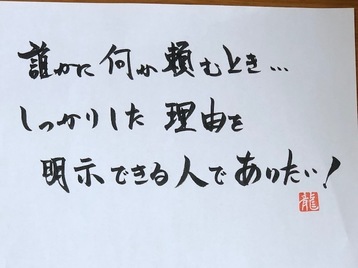 誰かに何か頼むとき…
しっかりした 理由を
明示できる人でありたい!
龍